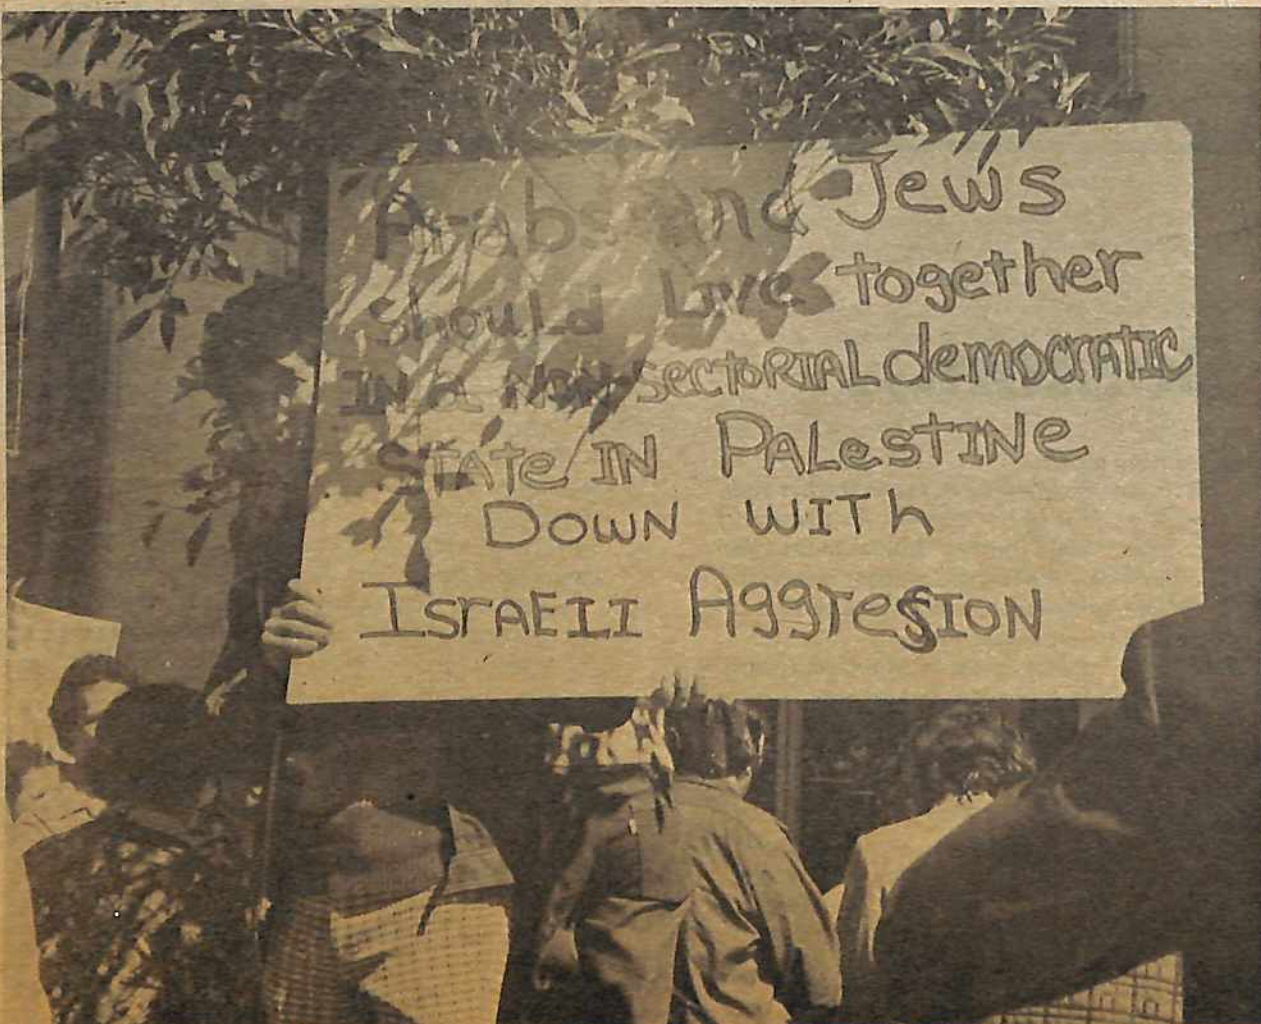 Arabs and Jews
should Lives together
IN a NON-SectoRIAL democratic
STATe IN PALesTINe
DOWN WITh
IsrAElI AggresSION